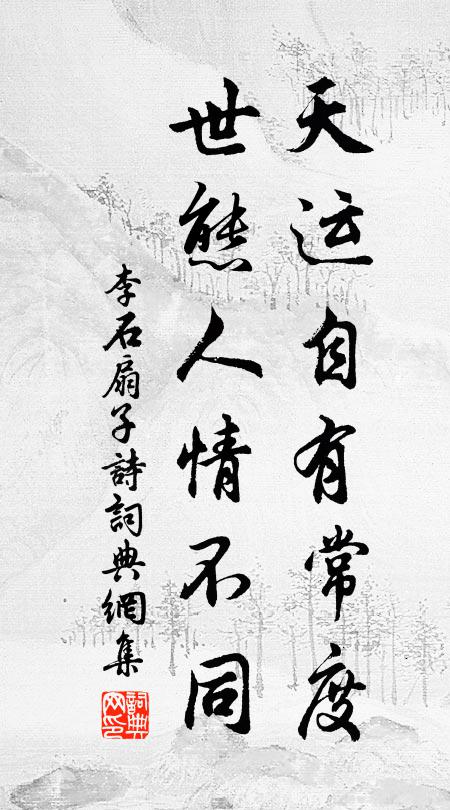 天运自有常度
世態人情不同
李石扇子詩詞典網集
詞典网印